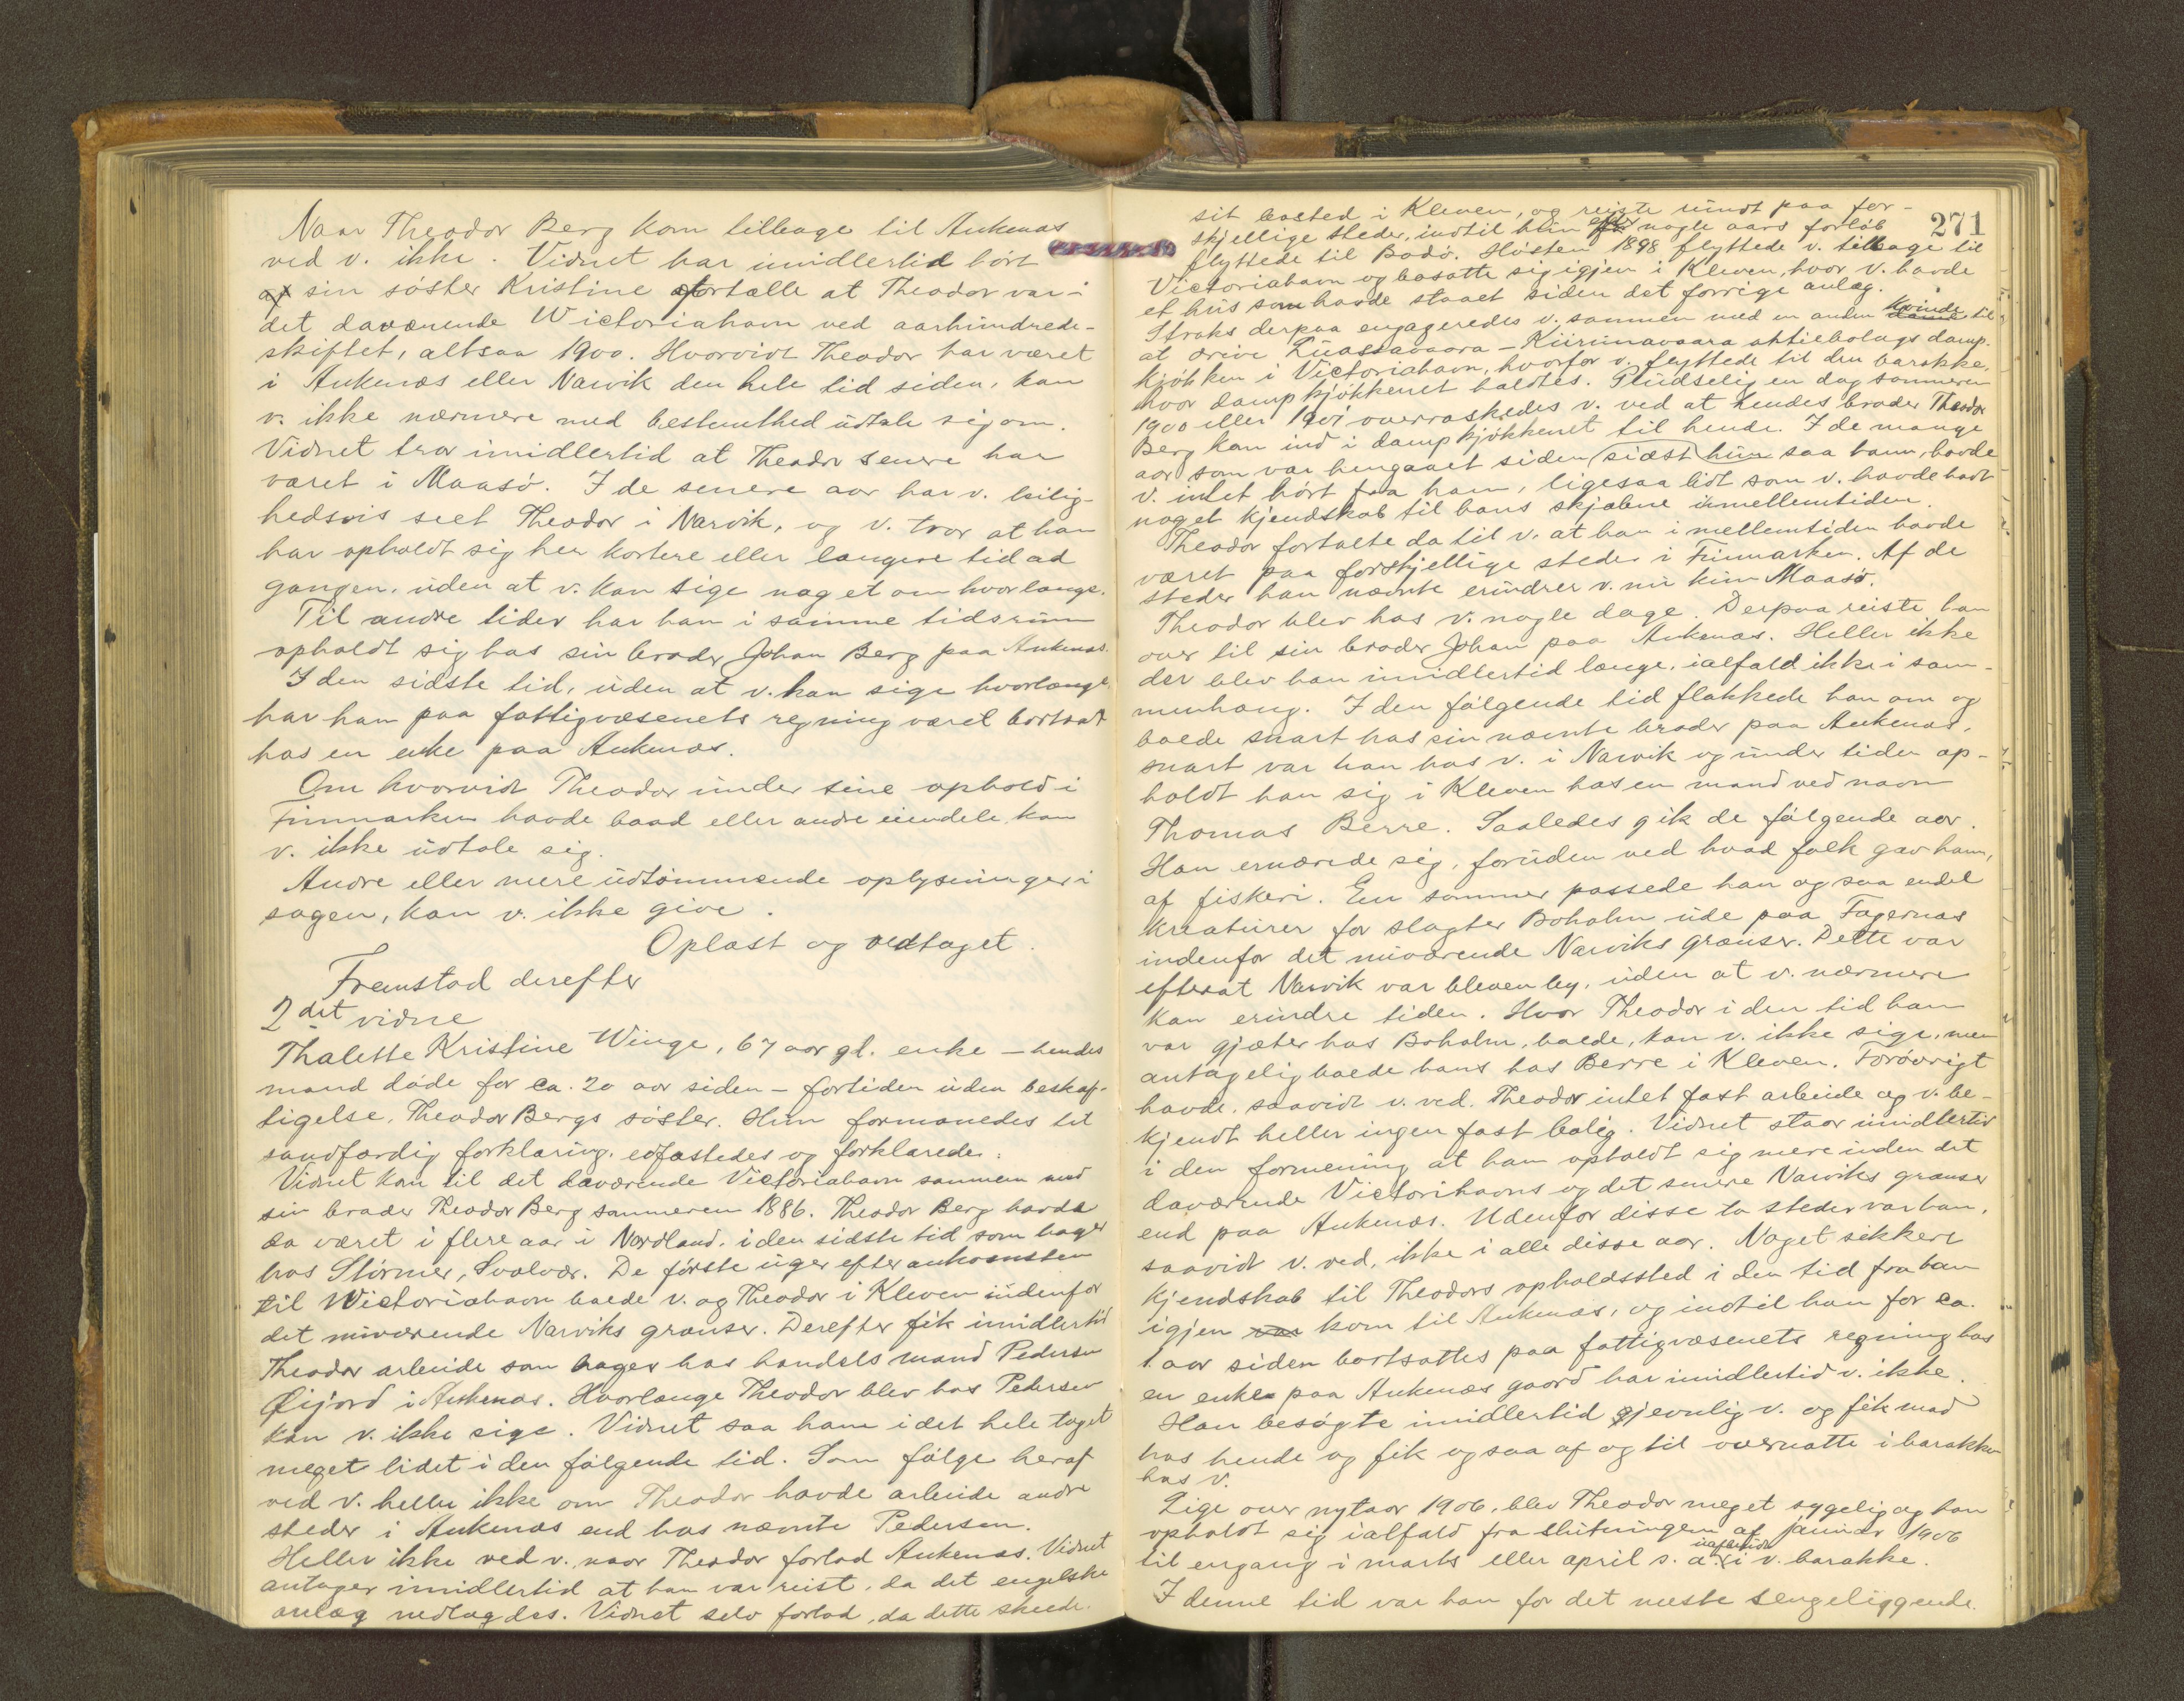 Naar Theodor Berg kom tilbage til Ankenæs
ved v. ikke. Vidnet har imidlertid hört
af sin söster Kristine fortælle at Theodor var i
det daværende Wictoriahavn ved aarhundrede-
skiftet, altsaa 1900. Hvorvidt Theodor har været
i Ankenæs eller Narvik den hele tid siden, kan
v. ikke nærmere med bestemthed udtale sig om.
Vidnet tror imidlertid at Theodor senere har
været i Maasö. I de senere aar har v. leilig-
hedsvis seet Theodor i Narvik, og v. tror at han
har opholdt sig her kortere eller længere tid ad
gangen, uden at v. kan sige noget om hvorlænge.
Til andre tider har han i samme tidsrum
opholdt sig hos sin broder Johan Berg paa Ankenæs.
I den sidste tid, uden at v. kan sige hvorlænge,
har han paa fattigvæsenets regning været bortsat
hos en enke paa Ankenæs.
Om hvorvidt Theodor under sine ophold i
Finmarken havde baad eller andre eiendele kan
v. ikke udtale sig.
Andre eller mere udtömmende oplysninger i
sagen, kan v. ikke give.
Oplæst og vedtaget.
Fremstod derefter
2det vidne
Thalette Kristine Winge, 67 aar gl. enke – hendes
mand döde for ca. 20 aar siden – fortiden uden beskjæf-
tigelse, Theodor Bergs söster. Hun formanedes til
sandfærdig forklaring, edfæstedes og forklarede:
Vidnet kom til det daværende Victoriahavn sammen med
sin broder Theodor Berg sommeren 1886. Theodor Berg havde
da været i flere aar i Nordland, i den sidste tid som bager
hos Störmer, Svolvær. De förste uger efter ankomsten
til Wictoriahavn boede v. og Theodor i Kleven indenfor
det nuværende Narviks grænser. Derefter fik imidlertid
Theodor arbeide som bager hos handelsmand Pedersen
Öijord i Ankenæs. Hvorlænge Theodor blev hos Pedersen
kan v. ikke sige. Vidnet saa ham i det hele taget
meget lidet i den fölgende tid. Som fölge heraf
ved v. heller ikke om Theodor havde arbeide andre
steder i Ankenæs end hos nævnte Pedersen.
Heller ikke ved v. naar Theodor forlod Ankenæs. Vidnet
antager imidlertid at han var reist, da det engelske
anlæg nedlagdes. Vidnet selv forlod, da dette skeede.
271
sit bosted i Kleven, og reiste rundt paa for-
skjellige steder, indtil hun efter nogle aars forlöb
flyttede til Bodö. Hösten 1898 flyttede v. tilbage til
Victoriahavn og bosatte sig igjen i Kleven, hvor v. havde
et hus som havde staaet siden det forrige anlæg.
Straks derpaa engageredes v. sammen med en anden dame kvinde til
at drive Luassavaara – Kiirunavaara aktiebolags damp-
kjökken i Victoriahavn, hvorfor v. flyttede til den barakke,
hvor dampkjökkenet holdtes. Pludselig en dag sommeren
1900 eller 1901 overraskedes v. ved at hendes broder Theodor
Berg kom ind i dampkjökkenet til hende. I de mange
aar som var hengaaet siden sidst hun saa ham, havde
v. intet hört fra ham, ligesaa lidt som v. havde havt
noget kjendskab til hans skjæbne i mellemtiden.
Theodor fortalte da til v. at han i mellemtiden havde
været paa forskjellige steder i Finmarken. Af de
steder han nævnte erindrer v. nu kun Maasö.
Theodor blev hos v. nogle dage. Derpaa reiste han
over til sin broder Johan paa Ankenæs. Heller ikke
der blev han imidlertid længe, ialfald ikke i sam-
menhæng. I den fölgende tid flakkede han om og
boede snart hos sin nævnte broder paa Ankenæs,
snart var han hos v. i Narvik og under tiden op-
holdt han sig i Kleven hos en mand ved navn
Thomas Berre. Saaledes gik de fölgende aar.
Han ernærede sig, foruden ved hvad folk gav ham,
af fiskeri. En sommer passede han ogsaa endel
kreaturer for slagter Boholm ude paa Fagernæs
indenfor det nuværende Narviks grænser. Dette var
efterat Narvik var bleven by, uden at v. nærmere
kan erindre tiden. Hvor Theodor i den tid han
var gjæter hos Boholm, boede, kan v. ikke sige, men
antagelig boede hans hos Berre i Kleven. Forövrigt
havde, saavidt v. ved, Theodor intet fast arbeide og v. be-
kjendt heller ingen fast bolig. Vidnet staar imidlertid
i den formening at han opholdt sig mere inden det
daværende Victorihavns og det senere Narviks grænser
end paa Ankenæs. Udenfor disse to steder var han,
saavidt v. ved, ikke i alle disse aar. Noget sikkert
kjendskab til Theodors opholdssted i den tid fra han
igjen kom til Ankenæs, og indtil han for ca.
1 aar siden bortsattes paa fattigvæsenets regning hos
en enke paa Ankenæs gaard har imidlertid v. ikke.
Han besögte imidlertid jevnlig v. og fik mad
hos hende og fik ogsaa af og til overnatte i barakken
hos v.
Lige over nytaar 1906, blev Theodor meget sygelig og han
opholdt sig ialfald fra slutningen af januar 1906
til engang i marts eller april s. a. uafbrudt i v. barakke.
I denne tid var han for det meste sengeliggende.